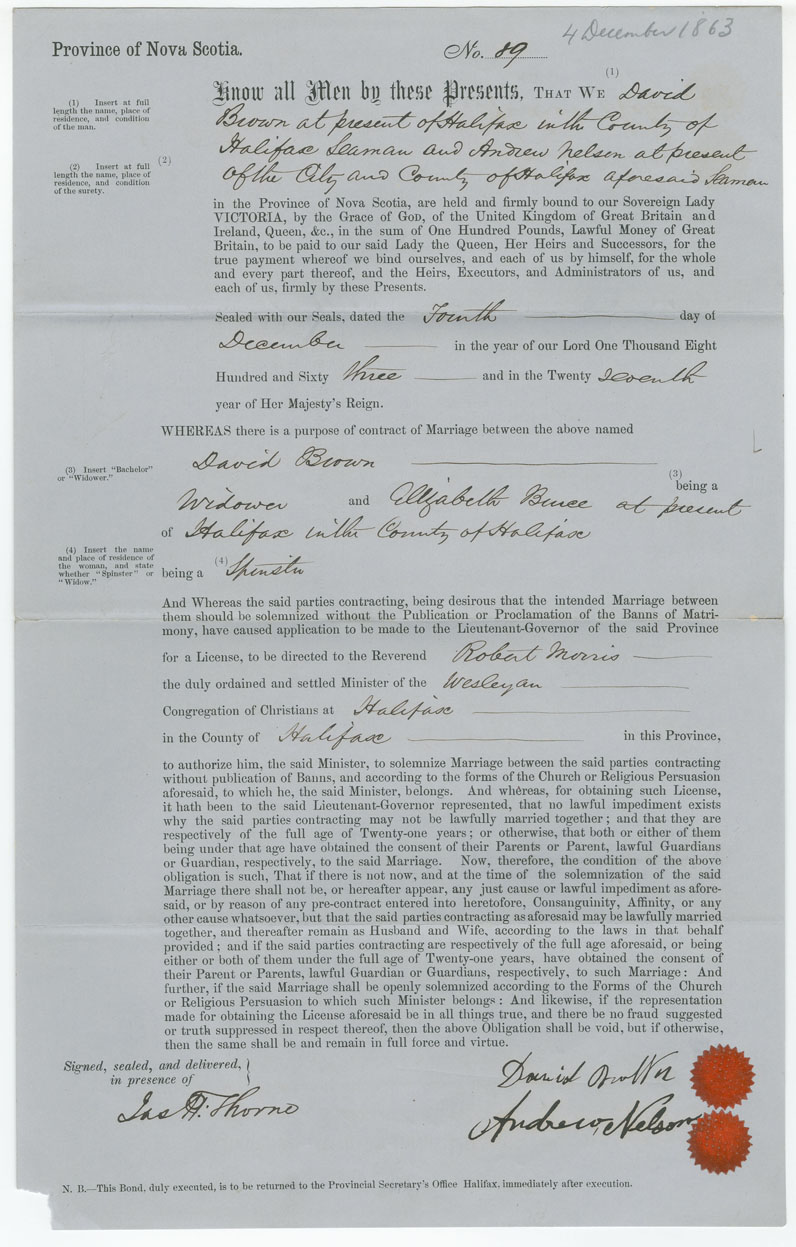 4 December 1863
Province of Nova Scotia.
No. 89
(1)
Know all Men by these Presents, THAT WE David
(1) Insert at full
length the name, place of
residence, and condition
of the man.
Brown at present of Halifax in the County of
Halifax Seaman and Andrew Nelson at present
(2)
(2) Insert at full
length the name, place of
residence, and condition
of the surety.
Of the City and County of Halifax aforesaid Seaman
in the Province of Nova Scotia, are held and firmly bound to our Sovereign Lady
VICTORIA, by the Grace of GOD, of the United Kingdom of Great Britain and
Ireland, Queen, &c., in the sum of One Hundred Pounds, Lawful Money of Great
Britain, to be paid to our said Lady the Queen, Her Heirs and Successors, for the
true payment whereof we bind ourselves, and each of us by himself, for the whole
and every part thereof, and the Heirs, Executors, and Administrators of us, and
each of us, firmly by these Presents.
Sealed with our Seals, dated the Fourth day of
December in the year of our Lord One Thousand Eight
Hundred and Sixty three and in the Twenty seventh
year of Her Majesty's Reign.
WHEREAS there is a purpose of contract of Marriage between the above named
(3) Insert "Bachelor"
or "Widower."
David Brown
(3)
being a
Widower and Elizabeth at present
of Halifax in the County of Halifax
(4) Insert the name
and place of residence of
the woman, and state
whether "Spinster" or
"Widow."
being a (4) Spinster
And Whereas the said parties contracting, being desirous that the intended Marriage between
them should be solemnized without the Publication or Proclamation of the Banns of Matri-
mony, have caused application to be made to the Lieutenant-Governor of the said Province
for a License, to be directed to the Reverend Robert Morris
the duly ordained and settled Minister of the Wesleyan
Congregation of Christians at Halifax
in the County of Halifax in this Province,
to authorize him, the said Minister, to solemnize Marriage between the said parties contracting
without publication of Banns, and according to the forms of the Church or Religious Persuasion
aforesaid, to which he, the said Minister, belongs. And whereas, for obtaining such License,
it hath been to the said Lieutenant-Governor represented, that no lawful impediment exists
why the said parties contracting may not be lawfully married together; and that they are
respectively of the full age of Twenty-one years; or otherwise, that both or either of them
being under that age have obtained the consent of their Parents or Parent, lawful Guardians
or Guardian, respectively, to the said Marriage. Now, therefore, the condition of the above
obligation is such, That if there is not now, and at the time of the solemnization of the said
Marriage there shall not be, or hereafter appear, any just cause or lawful impediment as afore-
said, or by reason of any pre-contract entered into heretofore, Consanguinity, Affinity, or any
other cause whatsoever, but that the said parties contracting as aforesaid may be lawfully married
together, and thereafter remain as Husband and Wife, according to the laws in that behalf
provided; and if the said parties contracting are respectively of the full age aforesaid, or being
either or both of them under the full age of Twenty-one years, have obtained the consent of
their Parent or Parents, lawful Guardian or Guardians, respectively, to such Marriage: And
further, if the said Marriage shall be openly solemnized according to the Forms of the Church
or Religious Persuasion to which such Minister belongs: And likewise, if the representation
made for obtaining the License aforesaid be in all things true, and there be no fraud suggested
or truth suppressed in respect thereof, then the above Obligation shall be void, but if otherwise,
then the same shall be and remain in full force and virtue.
Signed, sealed, and delivered,
in presence of
David
Jas H. Thorne
Andrew Nelson
N. B.—This Bond, duly executed, is to be returned to the Provincial Secretary's Office Halifax, immediately after execution.